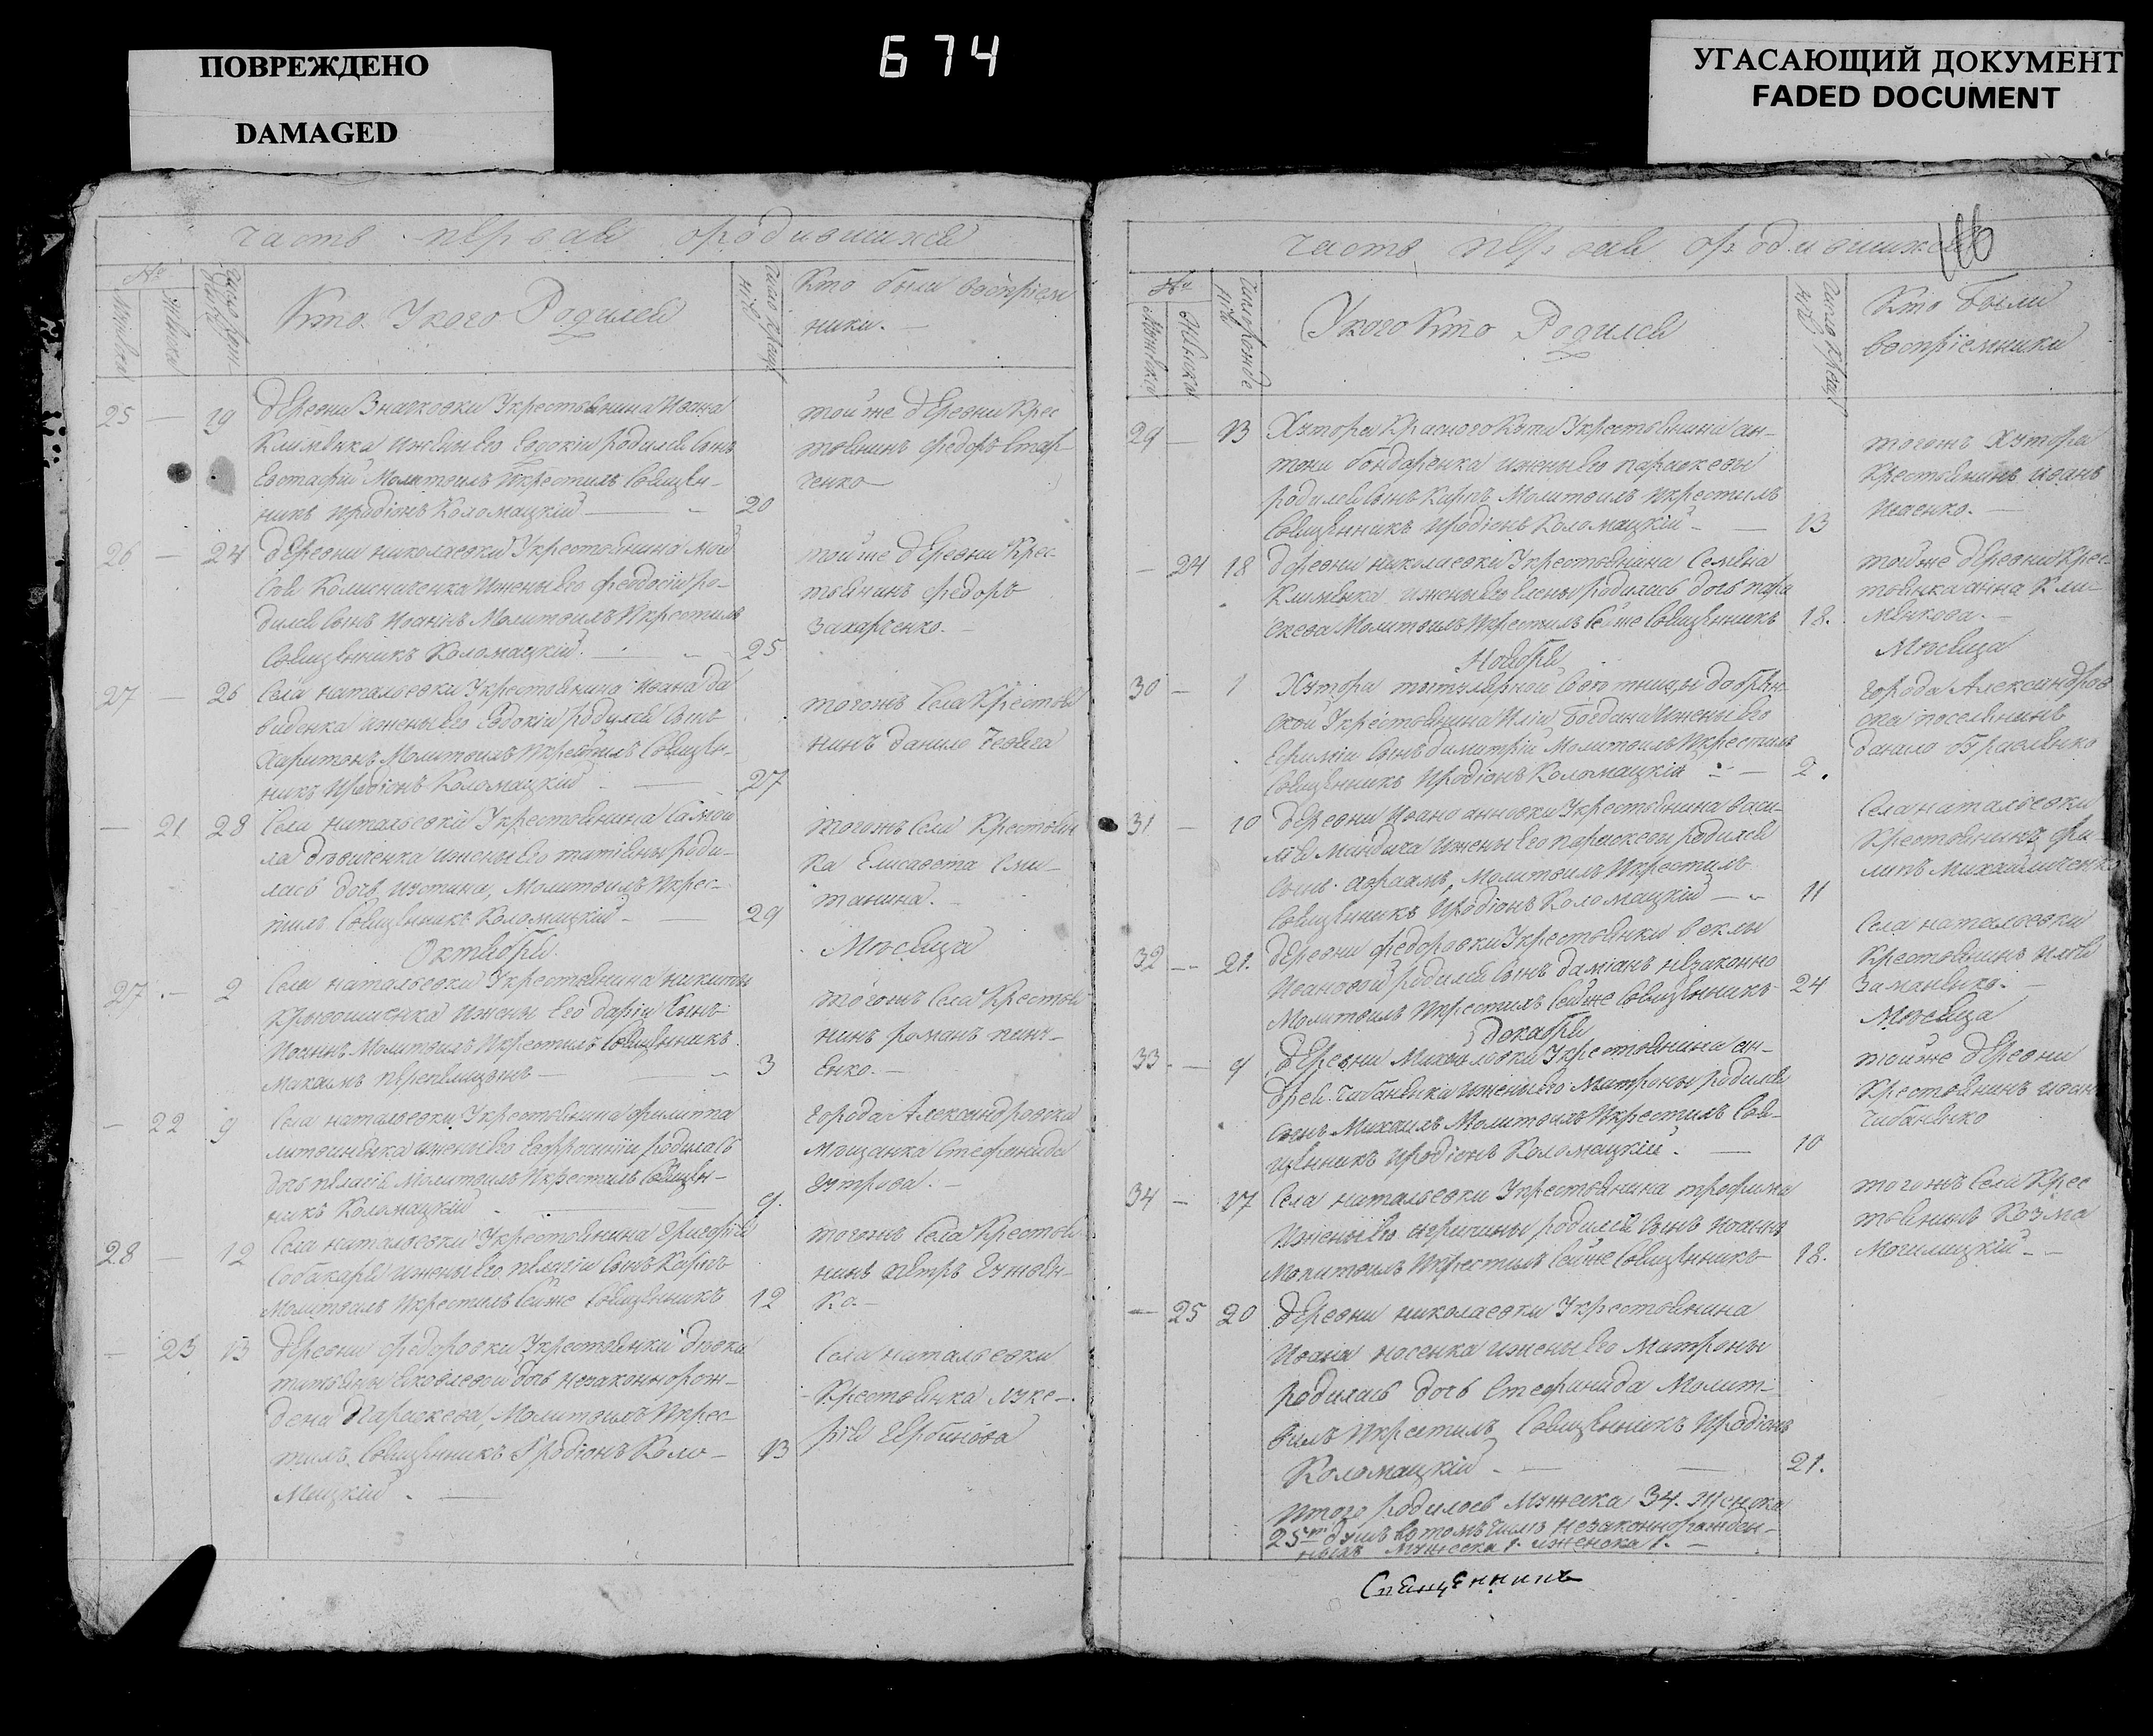 ПОВРЕЖДЕНО
DAMAGED
674
УГАСАЮЩИЙ ДОКУМЕНТ
FADED DOCUMENT
часть первая о родившихся
№
Кто У кого Родился
Кто были восприем
ники. —
25 — 19 деревни Значковки У крестьянина Иоана
Клименка и жены его Евдокіи родился сынъ
Евстафій Молитвилъ И крестилъ Священ-
никъ Иродіонъ Коломацкій — 20
той же деревни Крес
тьянинъ Федоръ Стар-
ченко
26 — 24 деревни николаевки У крестьянина Мой
сея Колисниченка И жены его феодосіи ро-
дился сынъ Иоаннъ Молитвилъ И крестилъ
Священникъ Коломацкій. — 25
той же деревни Крес
тьянинъ федоръ
Захарченко. —
27 — 26 Села натальевки У крестьянина Иоана да
виденка и жены его Евдокіи родился сынъ
Харитонъ Молитвилъ И крестилъ Священ-
никъ Иродіонъ Коломацкій — 27
тогожъ Села Крестья
нинъ данило
— 21 28 Села натальевки У крестьянина Самои
ла и жены его татіяны роди-
лась дочь Иустина, Молитвилъ И крес-
тилъ Священникъ Коломацкій — 29
тогожъ Села Крестьян
ка Елисавета Сми-
танина. —
Октября Мѣсяца
27 — 2 Села натальевки У крестьянина никиты
И жены его даріи Сынъ
Иоаннъ Молитвилъ И крестилъ Священникъ
Максимъ — 3
тогожъ Села Крестья
нинъ романъ пинч-
енко. —
— 22 9 Села натальевки У крестьянина филиппа
литвиненка и жены его Евфросиніи родилась
дочь пелагія Молитвилъ И крестилъ Священ-
никъ Коломацкій — 9.
города Александровска
Мещанка Стефанида
28 — 12 Села натальевки У крестьянина Григорія
Собакаря и жены его пелагіи сынъ Карпъ
Молитвилъ И крестилъ Сей же Священникъ 12
тогожъ Села Крестья
нинъ Петръ Гумен-
ко. —
— 23 13 деревни федоровки У крестьянки дѣвки
татіяны Яковлевой дочь незаконнорож-
дена Параскева, Молитвилъ И крес-
тилъ Священникъ Иродіонъ Коло- 13
Мацкій. —
Села натальевки
Крестьянка луке-
рія Щербинова
116
часть первая о родившихся
№
У кого Кто Родился
Кто Были
воспріемники
29 — 13 Хутора Красного Кута У крестьянина ан-
тона бондаренка и жены его параскевы
родился сынъ Карпъ Молитвилъ И крестилъ
Священникъ Иродіонъ Коломацкій — 13
тогожъ Хутора
Крестьянинъ Иоанъ
Ищенко. —
— 24 18 деревни николаевки У крестьянина Семена
Клименка и жены его Елены родилась дочь пара
скева Молитвилъ И крестилъ Сей же Священникъ 18.
той же деревни Крес-
тьянка анна Кли-
менкова. —
Ноября Мѣсяца
30 — 1 Хутора титулярной Совѣтницы добрян-
ской У крестьянина Иліи Богдана И жены его
Ефиміи Сынъ димитрій Молитвилъ И крестилъ
Священникъ Иродіонъ Коломацкій — 2.
города Александров
ска поселянинъ
данило буравленко
31 — 10 деревни Иваноанновки У крестьянина васи-
лія Мандыка И жены его параскевы родился
сынъ авраамъ, Молитвилъ И крестилъ
Священникъ Иродіонъ Коломацкій — 11
Села натальевки
Крестьянинъ фи-
липъ Михайличенко
32 — 21. деревни федоровки У крестьянки феклы
Ивановой родился сынъ даміанъ незаконно
Молитвилъ И крестилъ Сей же Священникъ 24
Села натальевки
Крестьянинъ Илья
Заманенко. —
декабря Мѣсяца
33 — 9 деревни Михайловки У крестьянина ан-
дрея Чабаненка и жены его Матроны родился
сынъ Михаилъ Молитвилъ И крестилъ Свя-
щенникъ Иродіонъ Коломацкій. — 10
той же деревни
Крестьянинъ Иоанъ
Чабаненко
34 — 17 Села натальевки У крестьянина трофима
И жены его родился сынъ Иоаннъ
Молитвилъ И крестилъ Сей же Священникъ 18.
тогожъ Села Крес
тьянинъ Козма
Могилицкій —
— 25 20 деревни николаевки У крестьянина
Ивана носенка и жены его Матроны
родилась дочь Стефанида Молит-
вилъ И крестилъ Священникъ Иродіонъ
Коломацкій — 21.
Итого родилось Мужеска 34. женска
25ть душъ въ томъ числѣ незаконнорожден-
ныхъ Мужеска 1. и женска 1. —
Священникъ